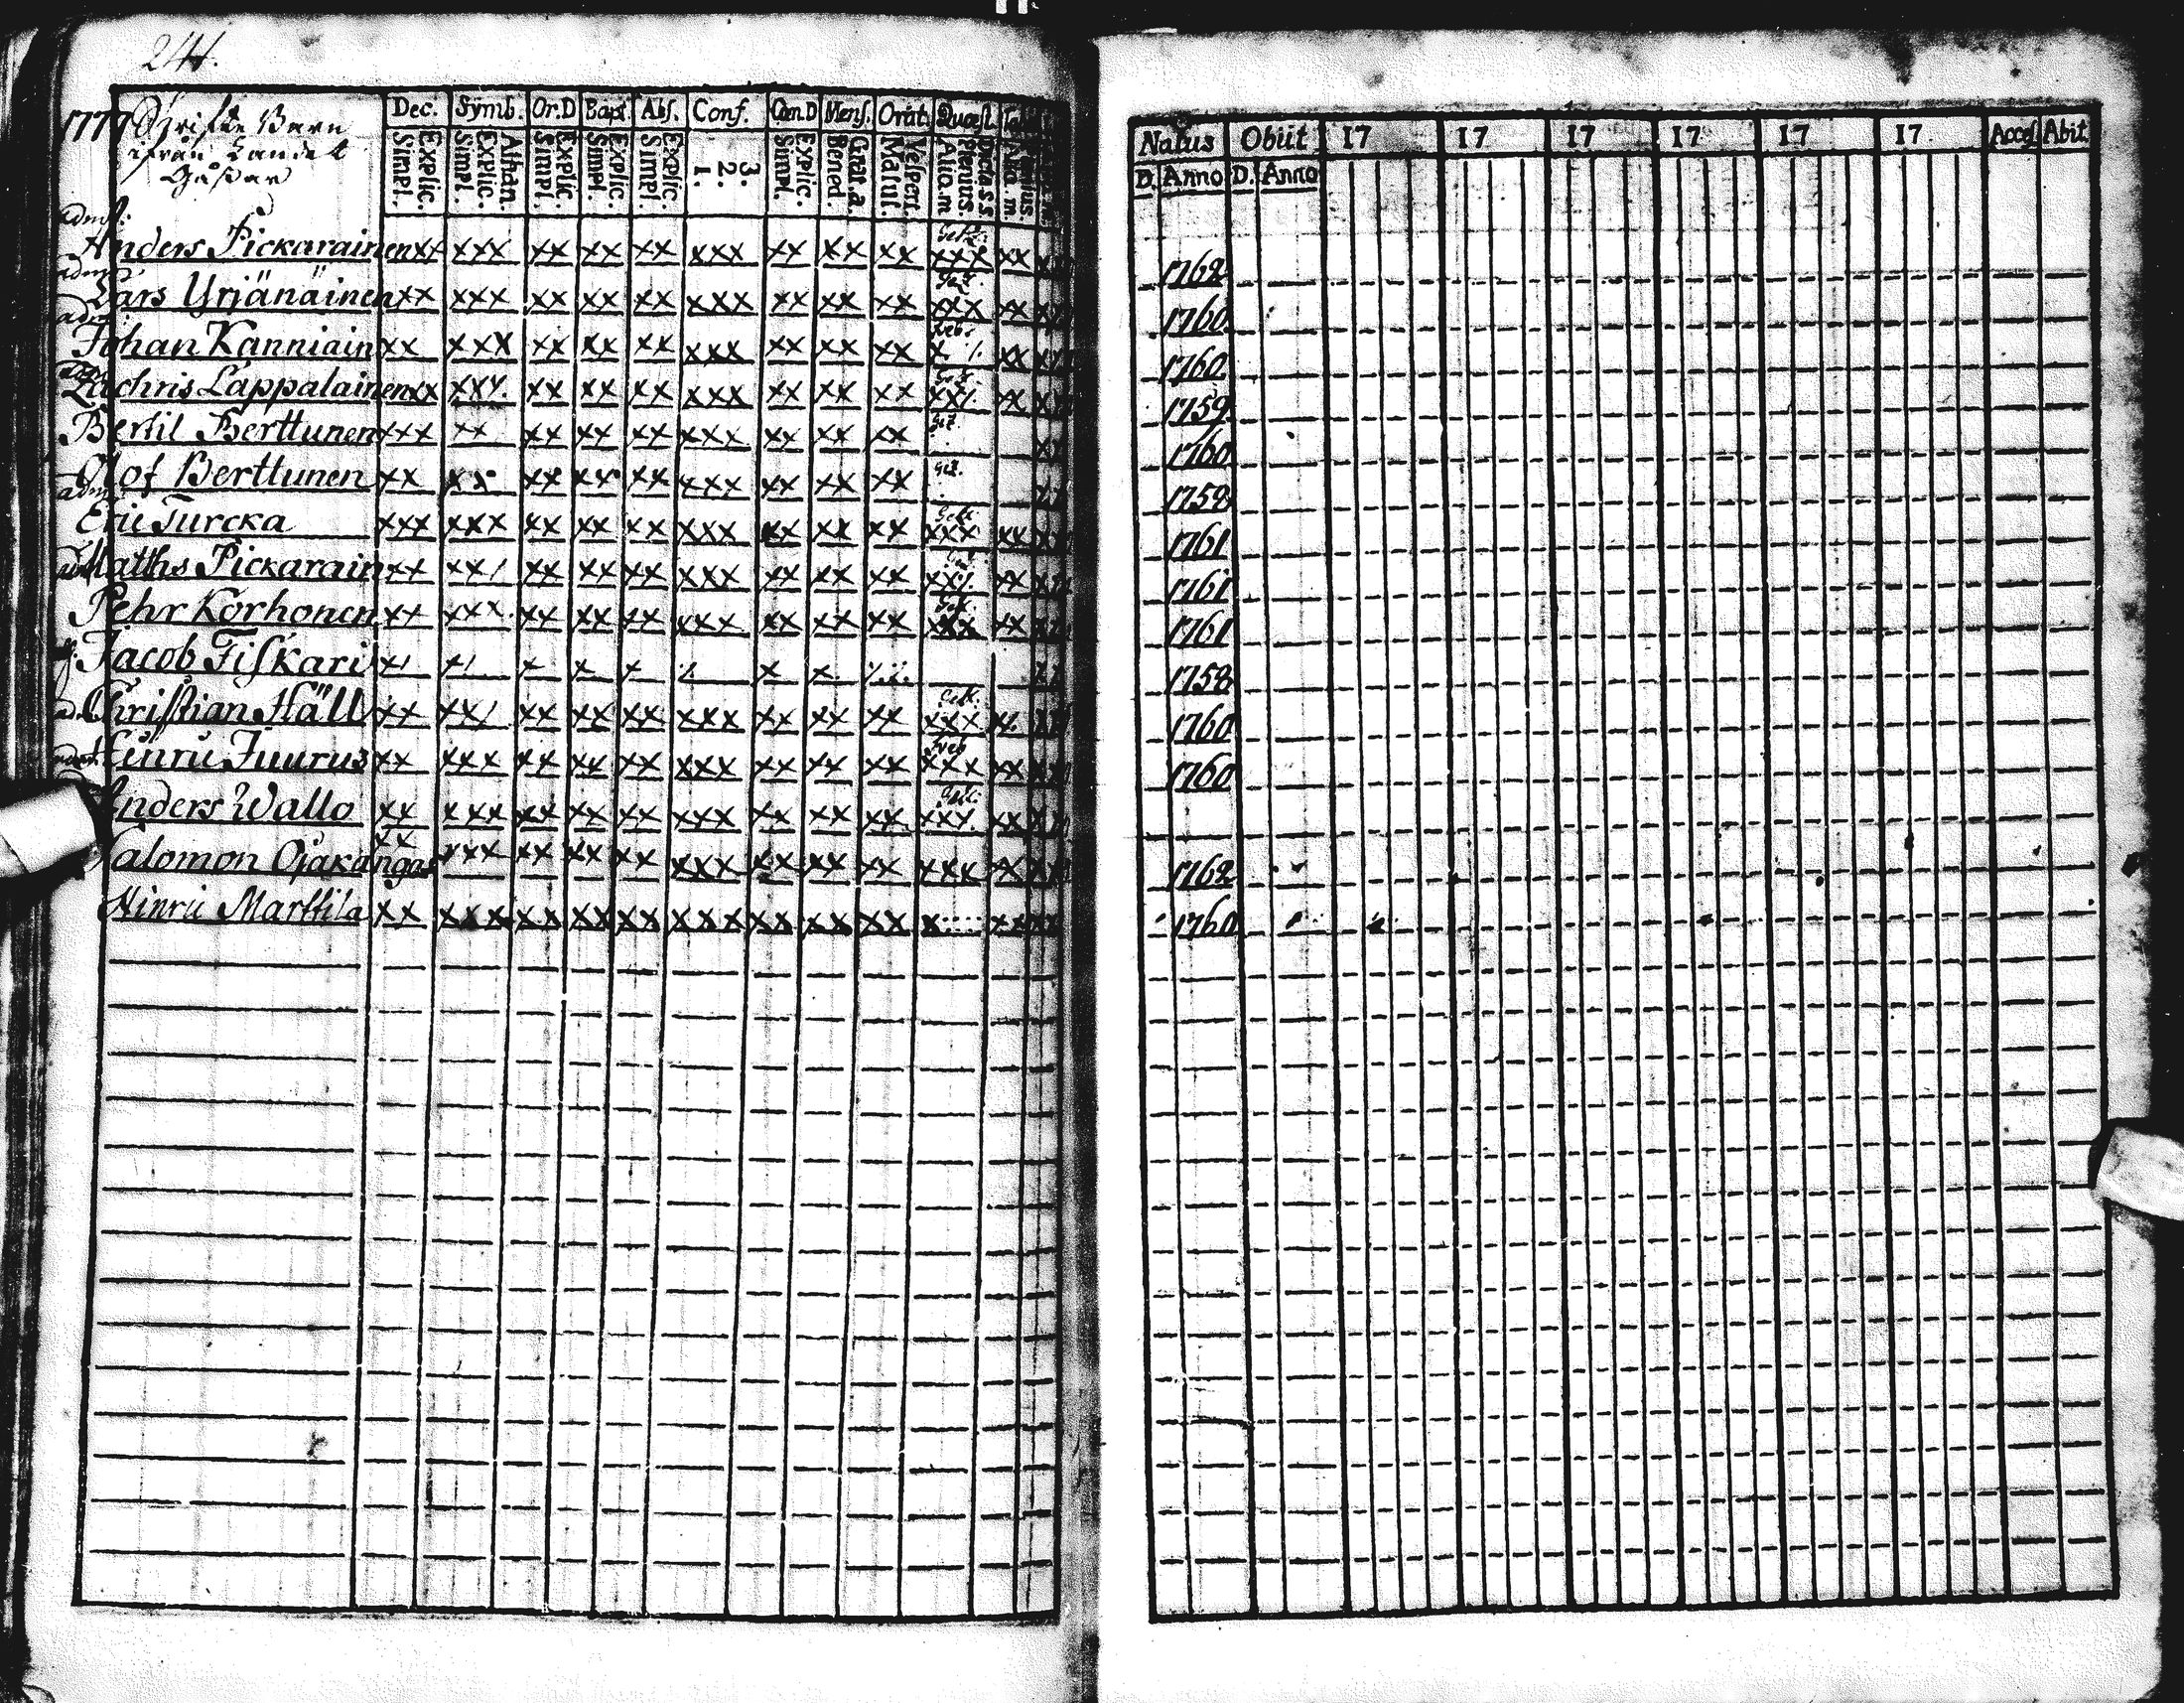 244.
1777 Skrifte Barn
ifrån Landet
Gåssar
Dec. Symb. Or.D Bapt. Abs. Conf. Cœn.D Mens. Orat. Quæst.
Explic. Simpl. Athan. Explic. Simpl. Explic. Simpl. Explic. Simpl. Explic. Simpl. 3. 2. 1. Explic. Simpl. Grat.a. Bened. Vespert. Matut. Dicta.s.s. Plenius. Aliq.m
Natus Obiit 17 17 17 17 17 17 Acces Abit
D. Anno D. Anno
adm:
Anders Pickarainen xx xxx xx xx xx xxx xx xx xx xxx xx 1762
Lars Yrjänäinen xx xxx xx xx xx xxx xx xx xx xxx xx 1760
Johan Kanniain xx xxx xx xx xx xxx xx xx xx 1760
Zachris Lappalainen xx xxx xx xx xx xxx xx xx xx xxx xx 1759
Bertil Berttunen xxx xx xx xx xx xxx xx xx xx 1760
Olof Berttunen xx xx xx xx xx xxx xx xx xx 1758
Eric Turcka xxx xxx xx xx xx xxx xx xx xx xxx xx 1761
Matths Pickarain xx xx/ xx xx xx xxx xx xx xx xxx xx 1761
Pehr Korhonen xx xxx xx xx xx xxx xx xx xx xxx xx 1761
Jacob Fiskari x/ x/ x x x x x 1758
Christian Häll xx xx/ xx xx xx xxx xx xx xx xxx 1760
Henric Juurus xx xxx xx xx xx xxx xx xx xx xxx xx 1760
Anders Wallo xx xxx xx xx xx xxx xx xx xx xxx xx
Salomon Ojakangas xx xxx xx xx xx xxx xx xx xx xxx xx 1762
Hinric Marttila xx xxx xx xx xx xxx xx xx xx x.... xx xx 1760